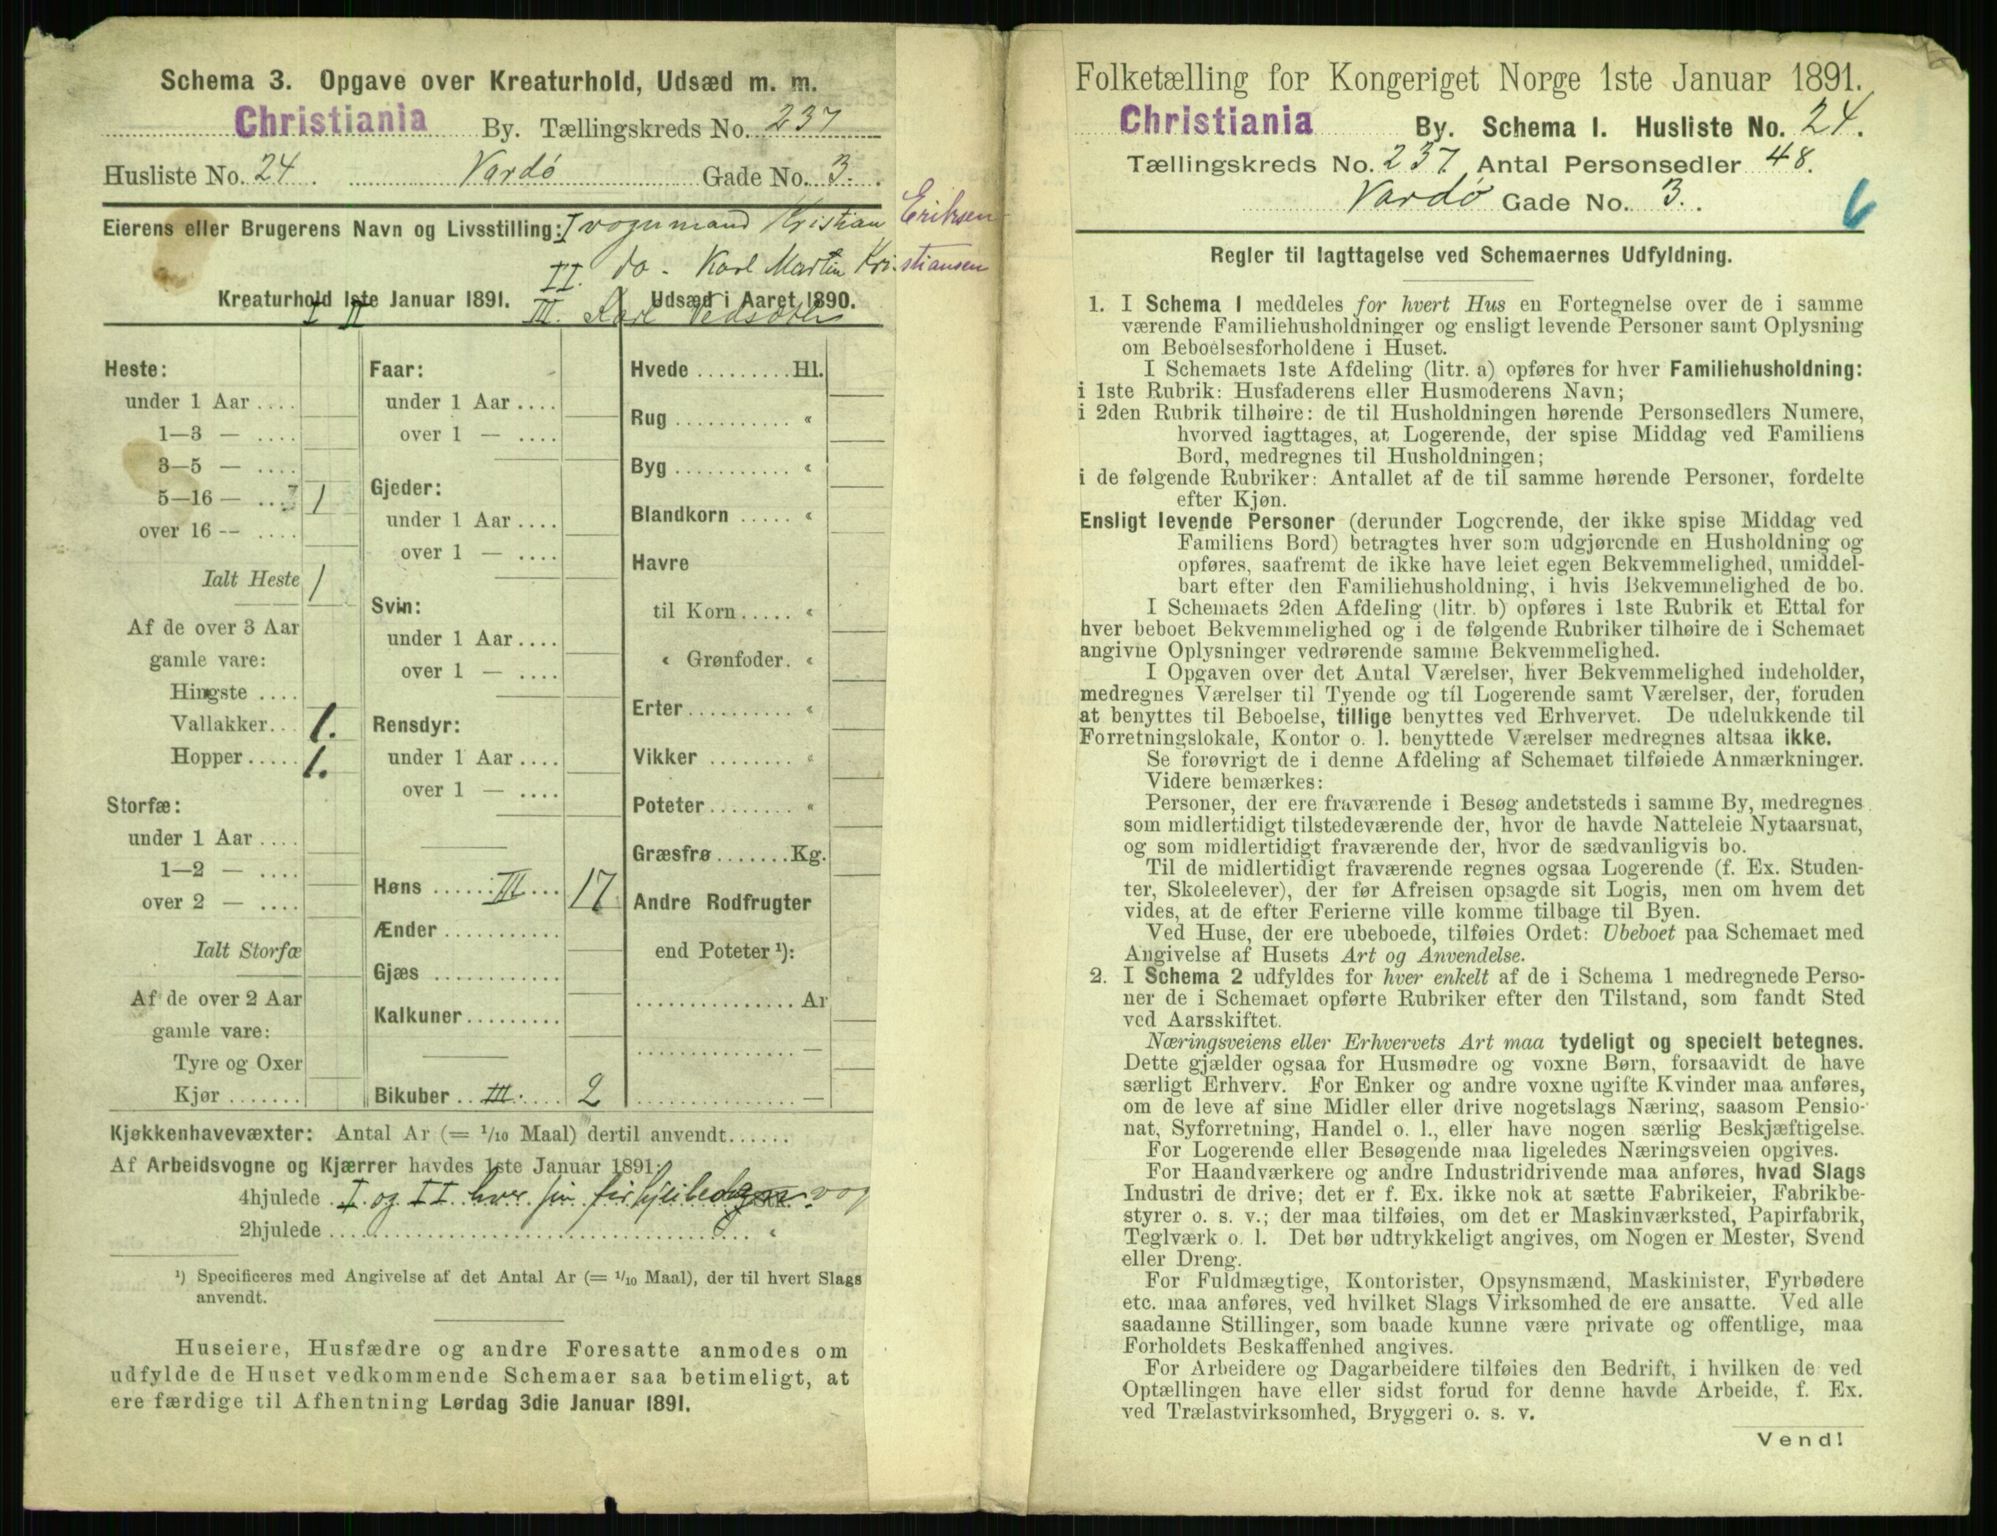 Schema 3. Opgave over Kreaturhold, Udsæd m. m.
Christiania By. Tællingskreds No. 237
Husliste No. 24. Vardø Gade No. 3.
Eierens eller Brugerens Navn og Livsstilling: I vognmand Kristian Eriksen
II do. Karl Martin Kristiansen
Kreaturhold 1ste Januar 1891. III. Karl Udsæd i Aaret 1890.
I II
Heste:
under 1 Aar ....
1—3 — ....
3—5 — ....
5—16 — .... 1
over 16 — ....
Ialt Heste 1
Af de over 3 Aar
gamle vare:
Hingste ....
Vallakker.. 1.
Hopper ..... 1.
Storfæ:
under 1 Aar ....
1—2 — ....
over 2 — ....
Ialt Storfæ
Af de over 2 Aar
gamle vare:
Tyre og Oxer
Kjør .......
Faar:
under 1 Aar ....
over 1 — ....
Gjeder:
under 1 Aar ....
over 1 — ....
Svin:
under 1 Aar ....
over 1 — ....
Rensdyr:
under 1 Aar ....
over 1 — ....
Høns ...... III ... 17
Ænder ...........
Gjæs ............
Kalkuner.........
Bikuber .. III. .... 2
Hvede ......... Hl.
Rug ........... «
Byg ........... «
Blandkorn ..... «
Havre
til Korn ..... «
« Grønfoder. «
Erter .......... «
Vikker ......... «
Poteter ........ «
Græsfrø ....... Kg.
Andre Rodfrugter
end Poteter ¹):
............... Ar
............... —
............... —
Kjøkkenhavevæxter: Antal Ar (= 1/10 Maal) dertil anvendt......
Af Arbeidsvogne og Kjærrer havdes 1ste Januar 1891:
4hjulede I og II hver sin Stk.
2hjulede ................................ «
¹) Specificeres med Angivelse af det Antal Ar (= 1/10 Maal), der til hvert Slags
anvendt.
Huseiere, Husfædre og andre Foresatte anmodes om
udfylde de Huset vedkommende Schemaer saa betimeligt, at
ere færdige til Afhentning Lørdag 3die Januar 1891.
Folketælling for Kongeriget Norge 1ste Januar 1891.
Christiania By. Schema 1. Husliste No. 24.
Tællingskreds No. 237. Antal Personsedler 48.
Vardø Gade No. 3.
6
Regler til Iagttagelse ved Schemaernes Udfyldning.
1. I Schema 1 meddeles for hvert Hus en Fortegnelse over de i samme
værende Familiehusholdninger og ensligt levende Personer samt Oplysning
om Beboelsesforholdene i Huset.
I Schemaets 1ste Afdeling (litr. a) opføres for hver Familiehusholdning:
i 1ste Rubrik: Husfaderens eller Husmoderens Navn;
i 2den Rubrik tilhøire: de til Husholdningen hørende Personsedlers Numere,
hvorved iagttages, at Logerende, der spise Middag ved Familiens
Bord, medregnes til Husholdningen;
i de følgende Rubriker: Antallet af de til samme hørende Personer, fordelte
efter Kjøn.
Ensligt levende Personer (derunder Logerende, der ikke spise Middag ved
Familiens Bord) betragtes hver som udgjørende en Husholdning og
opføres, saafremt de ikke have leiet egen Bekvemmelighed, umiddel-
bart efter den Familiehusholdning, i hvis Bekvemmelighed de bo.
I Schemaets 2den Afdeling (litr. b) opføres i 1ste Rubrik et Ettal for
hver beboet Bekvemmelighed og i de følgende Rubriker tilhøire de i Schemaet
angivne Oplysninger vedrørende samme Bekvemmelighed.
I Opgaven over det Antal Værelser, hver Bekvemmelighed indeholder,
medregnes Værelser til Tyende og til Logerende samt Værelser, der, foruden
at benyttes til Beboelse, tillige benyttes ved Erhvervet. De udelukkende til
Forretningslokale, Kontor o. l. benyttede Værelser medregnes altsaa ikke.
Se forøvrigt de i denne Afdeling af Schemaet tilføiede Anmærkninger.
Videre bemærkes:
Personer, der ere fraværende i Besøg andetsteds i samme By, medregnes
som midlertidigt tilstedeværende der, hvor de havde Natteleie Nytaarsnat,
og som midlertidigt fraværende der, hvor de sædvanligvis bo.
Til de midlertidigt fraværende regnes ogsaa Logerende (f. Ex. Studen-
ter, Skoleelever), der før Afreisen opsagde sit Logis, men om hvem det
vides, at de efter Ferierne ville komme tilbage til Byen.
Ved Huse, der ere ubeboede, tilføies Ordet: Ubeboet paa Schemaet med
Angivelse af Husets Art og Anvendelse.
2. I Schema 2 udfyldes for hver enkelt af de i Schema 1 medregnede Perso-
ner de i Schemaet opførte Rubriker efter den Tilstand, som fandt Sted
ved Aarsskiftet.
Næringsveiens eller Erhvervets Art maa tydeligt og specielt betegnes.
Dette gjælder ogsaa for Husmødre og voxne Børn, forsaavidt de have
særligt Erhverv. For Enker og andre voxne ugifte Kvinder maa anføres,
om de leve af sine Midler eller drive nogetslags Næring, saasom Pensio-
nat, Syforretning, Handel o. l., eller have nogen særlig Beskjæftigelse.
For Logerende eller Besøgende maa ligeledes Næringsveien opgives.
For Haandværkere og andre Industridrivende maa anføres, hvad Slags
Industri de drive; det er f. Ex. ikke nok at sætte Fabrikeier, Fabrikbe-
styrer o. s. v.; der maa tilføies, om det er Maskinværksted, Papirfabrik,
Teglværk o. l. Det bør udtrykkeligt angives, om Nogen er Mester, Svend
eller Dreng.
For Fuldmægtige, Kontorister, Opsynsmænd, Maskinister, Fyrbødere
etc. maa anføres, ved hvilket Slags Virksomhed de ere ansatte. Ved alle
saadanne Stillinger, som baade kunne være private og offentlige, maa
Forholdets Beskaffenhed angives.
For Arbeidere og Dagarbeidere tilføies den Bedrift, i hvilken de ved
Optællingen have eller sidst forud for denne havde Arbeide, f. Ex.
ved Trælastvirksomhed, Bryggeri o. s. v.
Vend!